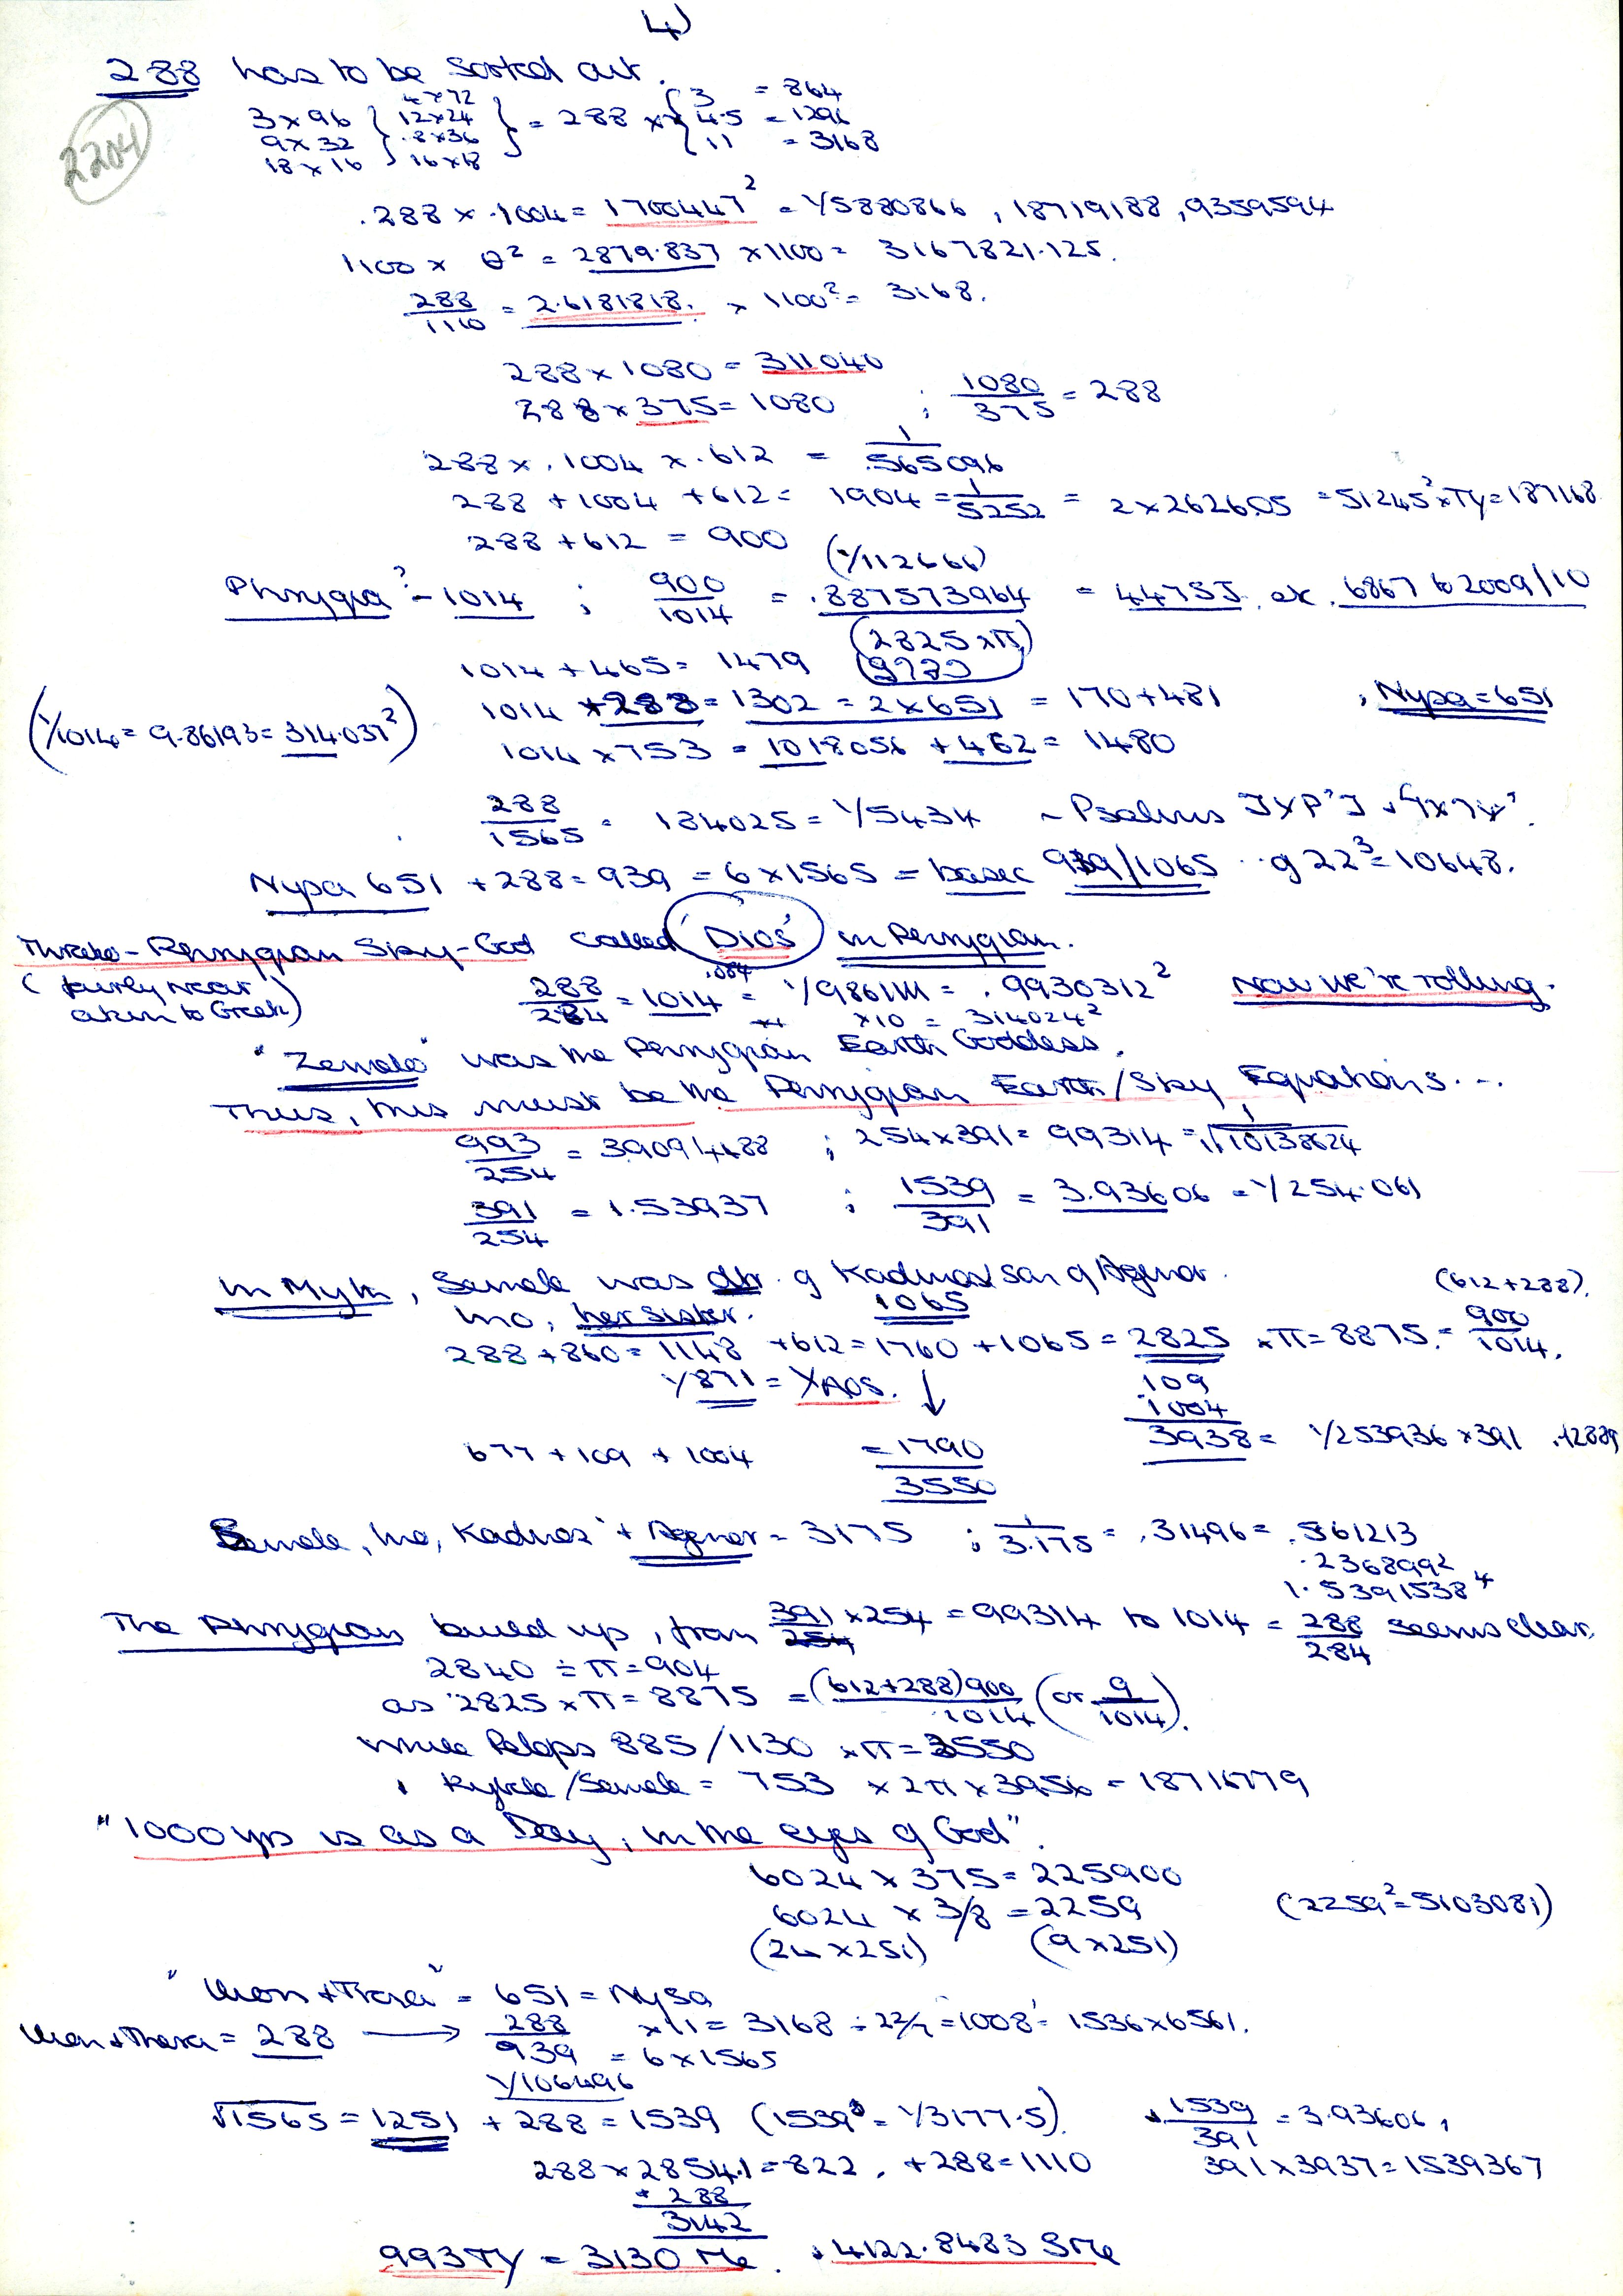 4)
288 has to be sorted out.
2204
3 x 96 4 x 72
9 x 32 12 x 24 = 288 x 3 = 864
18 x 16 8 x 36 4.5 = 1296
16 x 18 11 = 3168
.288 x .1004 = 1700447² = 1/5880866 , 18719188 , 9359594
1100 x θ² = 2879.837 x 1100 = 3167821.125.
288/1110 = 2.6181818. x 1100² = 3168.
288 x 1080 = 311040
288 x 375 = 1080 ; 1080/375 = 288
288 x .1004 x .612 = 1/.565096
288 + 1004 + 612 = 1904 = 1/5252 = 2 x 262605 = 51245² x TY = 187168
288 + 612 = 900 (1/112666)
Phrygia? - 1014 ; 900/1014 = .887573964 = 44755 etc. 6867 to 2009/10
(2825 x π)
1014 + 465 = 1479
(1/1014 = 9.86193 = 314.037²) 1014 + 288 = 1302 = 2 x 651 = 170 + 481 , Nysa = 651
1014 x 753 = 1018056 + 462 = 1480
288/1565 = 184025 = 1/5434 ~ Psalms
Nysa 651 + 288 = 939 = 6 x 1565 = basec 939/1065 .. g 22³ = 10648.
Thrako-Phrygian Sky-God called 'Dios' in Phrygian.
(fairly near akin to Greek) 288/284 = 1014.084 = 1/986111 = .9930312² Now we're rolling.
x10 = 314024²
"Zemelo" was the Phrygian Earth Goddess.
Thus, this must be the Phrygian Earth/Sky Equations...
993/254 = 39091488 ; 254 x 391 = 99314 = 1/√10138624
391/254 = 1.53937 ; 1539/391 = 3.93606 = 1/254.061
In Myth, Semele was dtr. g Kadmos son g Agenor.
Ino, her sister. 1065 (612+288).
288 + 860 = 1148 + 612 = 1760 + 1065 = 2825 x π = 8875. = 900/1014.
1/871 = XAOS. ↓ .109
.1004
677 + 109 + 1004 = 1790 3938 = 1/253936 x 391
3550
Semele, Ino, Kadmos + Agenor = 3175 ; 1/3.175 = .31496 = .561213
.2368992
1.5391538⁴
The Phrygian build up, from 391/254 x 254 = 99314 to 1014 = 288/284 seems clear.
2840 ÷ π = 904
as 2825 x π = 8875 = (612+288)900/1014 (or 9/1014).
while Pelops 885/1130 x π = 3550
, Kybele/Semele = 753 x 2π x 3956 = 18716779
"1000 yrs is as a Day, in the eyes g God".
6024 x 375 = 225900
6024 x 3/8 = 2259 (2259² = 5103081)
(24 x 251) (9 x 251)
" + Thera" = 651 = Nysa
+ Thera = 288 → 288 x 11 = 3168 ÷ 22/7 = 1008 = 1536 x 6561.
939 = 6 x 1565
1/106496
√1565 = 1251 + 288 = 1539 (1539³ = 1/3177.5). , 1539/391 = 3.93606,
288 x 2854.1 = 822 , + 288 = 1110 391 x 3937 = 1539367
+ 288
3142
993TY = 3130 Me. , 4122.8483 SMe